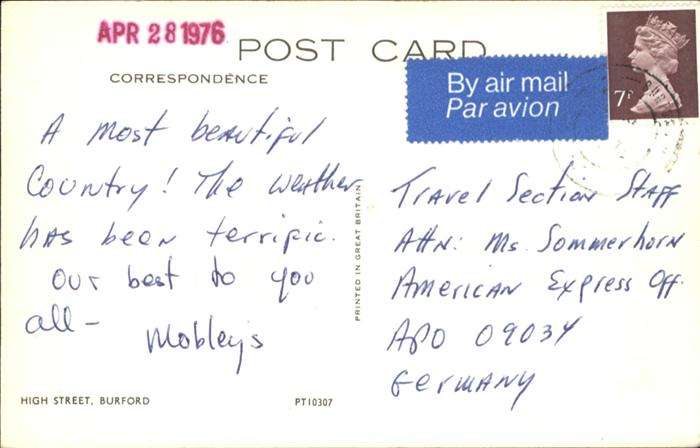 APR 28 1976
POST CARD
CORRESPONDENCE
By air mail
Par avion
7P
A most beautiful
Country! The weather
has been terrific.
Our best to you
all-
Mobley's
PRINTED IN GREAT BRITAIN
Travel Section Staff
Attn: Ms. Sommerhorn
American Express Off.
APO 09034
Germany
HIGH STREET, BURFORD
PT10307